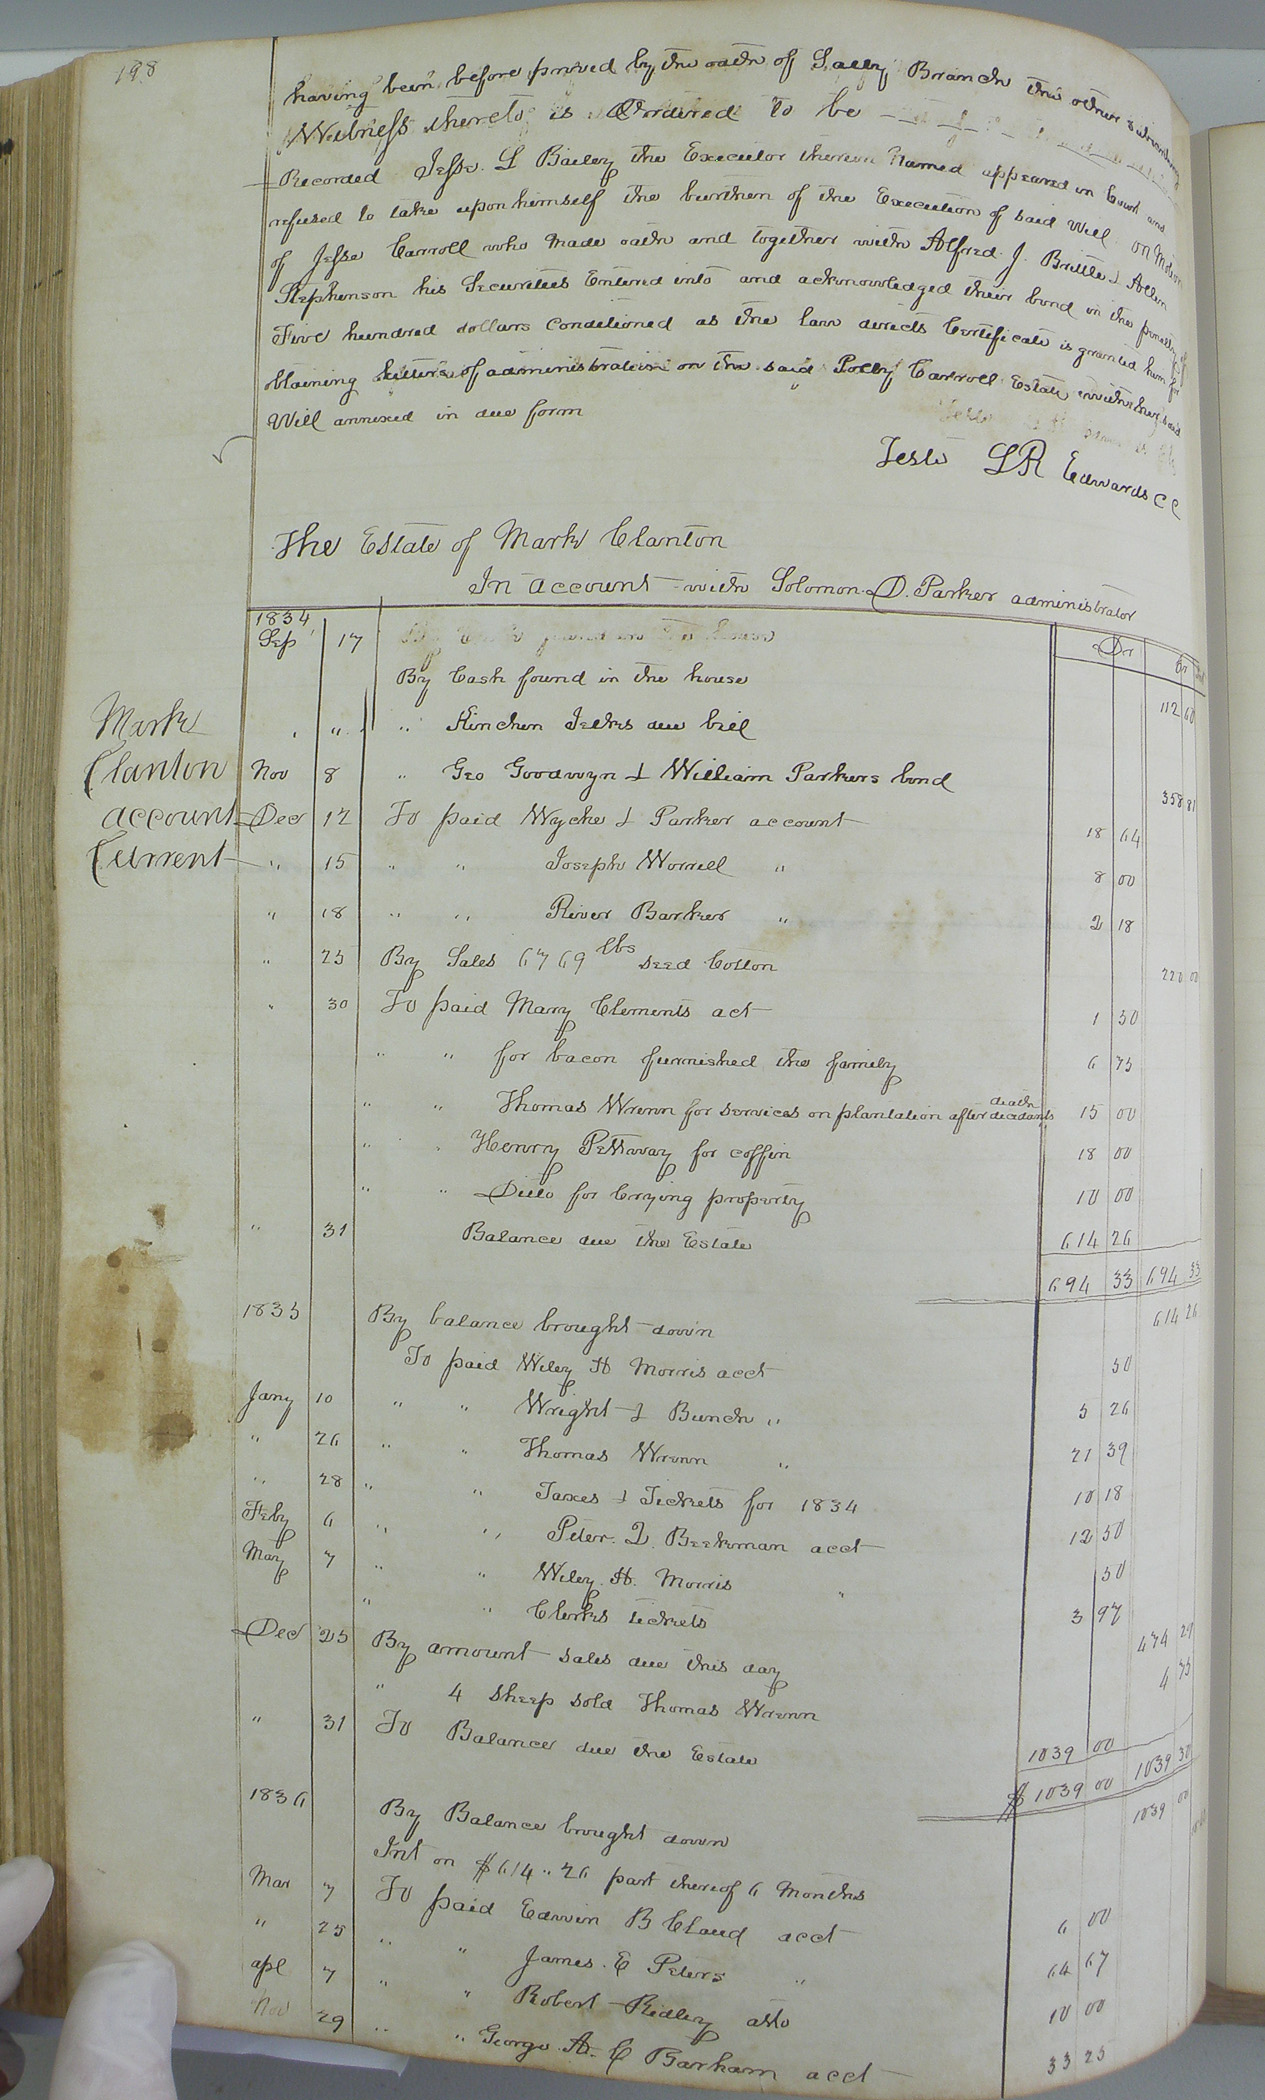 198
having been before proved by the oath of Sally Branch the other subscribing
Witness thereto is Ordered to be
Recorded Jesse L Bailey the Executor therein Named appeared in Court and
refused to take upon himself the burthen of the Execution of said Will on Motion
of Jesse Carroll who Made oath and together with Alfred J. Brittle & Allen
Stephenson his Securities Entered into and acknowledged their bond in the penalty of
Five hundred dollars Conditioned as the law directs Certificate is granted him for
obtaining letters of administration on the said Polly Carroll Estate with her said
Will annexed in due form
Teste LR Edwards CC
The Estate of Mark Clanton
In account with Solomon D. Parker administrator
1834 Dr Cr
Sep 17
By Cash found in the house 112 60
" " " Kinchen Jelks due bill
Mark Clanton account Current
Nov 8 " Geo Goodwyn & William Parkers bond 358 81
Dec 12 To paid Wyche & Parker account 18 64
" 15 " " Joseph Worrell " 8 00
" 18 " " River Barker " 2 18
" 25 By Sales 6769 lbs seed Cotton 220 00
" 30 To paid Mary Clements act 1 50
" " for bacon furnished the family 6 75
" " Thomas Wrenn for services on plantation after decedants death 15 00
" " Henry Pettaway for coffin 18 00
" " Ditto for Crying property 10 00
" 31 Balance due the Estate 614 26
694 33 694 33
1835 By balance brought down 614 26
To paid Wiley H Morris acct 50
Jany 10 " " Wright & Bunch " 5 26
" 26 " " Thomas Wrenn " 21 39
" 28 " " Taxes & Tickets for 1834 10 18
Feby 6 " " Peter D. Beekman acct 12 50
May 7 " " Wiley H. Morris " 50
" " Clerks tickets 3 97
Dec 25 By amount sales due this day 474 29
" 4 sheep sold Thomas Wrenn 4 75
" 31 To Balance due the Estate 1039 00
$ 1039 00 1039 30
1836 By Balance brought down 1039 00
Int on $614..26 part thereof 6 Months
Mar 7 To paid Edwin B Claud acct 6 00
" 25 " " James E Peters " 64 67
apl 7 " " Robert Ridley atto 10 00
Nov 29 " " George A. C Barham acct 33 25